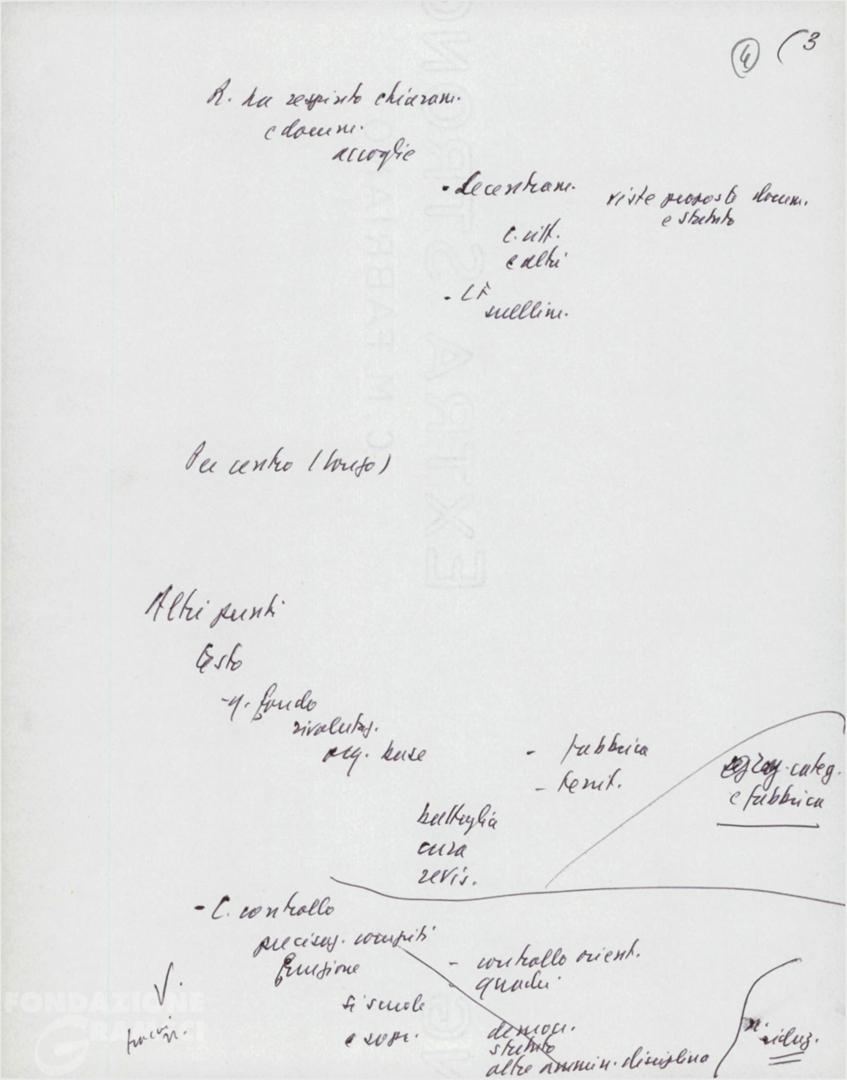 4 (3
R. ha respinto chiaram.
e docum.
accoglie
- decentram.
viste proposte docum.
e statuto
C. citt.
e altri
- CF
snellim.
Per centro (Longo)
Altri punti
Testo
- q. fondo
rivalutaz.
org. base
- fabbrica
- territ.
categ.
e fabbrica
battaglia
cura
revis.
- C. controllo
precisaz. compiti
funzione
- controllo orient.
- quadri
V.
si vuole
e sopr.
democr.
statuto
altre ammin. disciplina
n.
riduz.
FONDAZIONE
GRAMSCI
EXTRA STRONG
C.M. FABRIANO